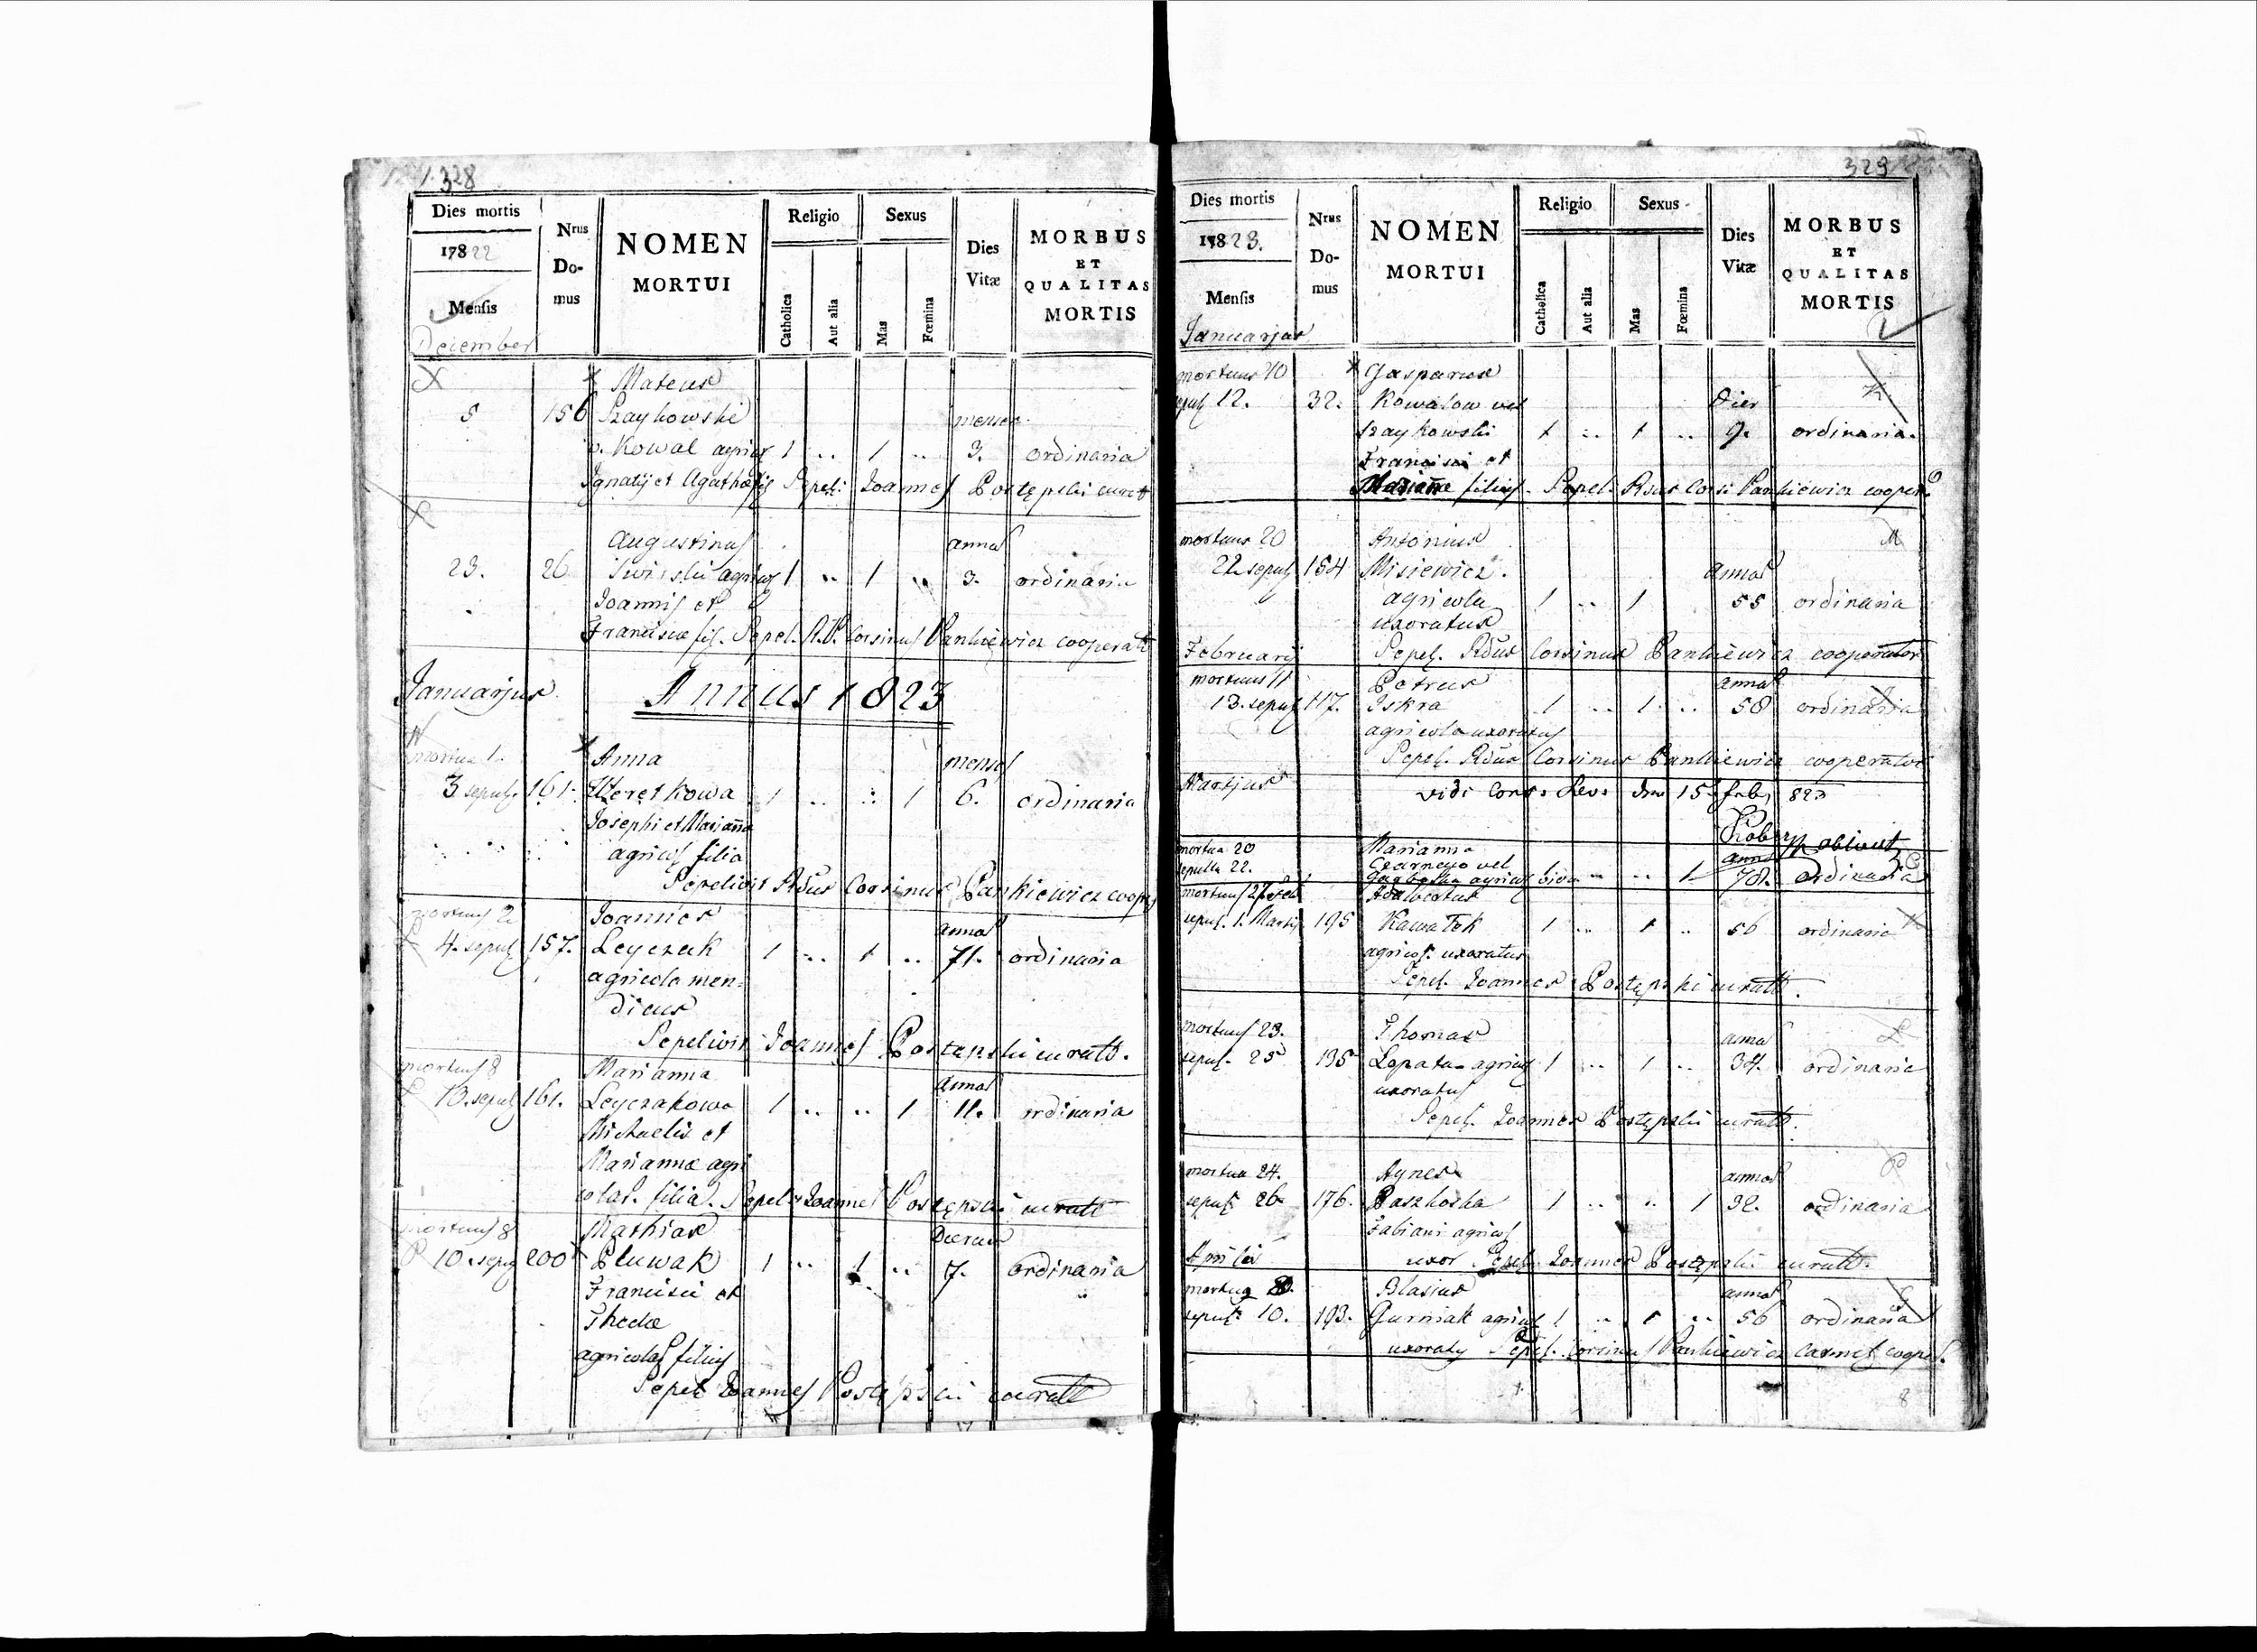 328
Dies mortis
1822
Mensis
December
Nrus
Do-
mus
NOMEN
MORTUI
Religio
Catholica
Aut alia
Sexus
Mas
Fœmina
Dies
Vitæ
MORBUS
ET
QUALITAS
MORTIS
Mateus
5 156 Szaykowski menses
v. Kowal agricol 1 .. 1 .. 3. ordinaria
Ignatij et Agathæ fil Sepel: Joannes Postępski curat
Augustinus annos
23. 26 agricol 1 .. 1 .. 3. ordinaria
Joannis et
Franciscæ fil. Sepel. R.P. Corsinus Pankiewicz cooperat
Januarjus Annus 1823
mortua 1. Anna menses
3 sepul. 161. 1 .. .. 1 6. ordinaria
Josephi et Marianna
agricol filia
Sepelivit Rdus Corsinus Pankiewicz cooper
mortuus 2. Joannes annos
4. sepul 157. Leyczak 1 .. 1 .. 71. ordinaria
agricola men=
dicus
Sepelivit Joannes Postępski curatt.
mortuus 8 Marianna annos
10. sepul 161. Leyczakowa 1 .. .. 1 11. ordinaria
Michaelis et
Mariannæ agri
colar. filia. Sepel. Joannes Postępski curatt
mortuus 8 Mathias Dierum
10. sepul 200 Pluwak 1 .. 1 .. 7. ordinaria
Francisci et
Theclæ
agricolar filius
Sepel Joannes Postępski curatt
329
Dies mortis
1823.
Mensis
Januarjus
Nrus
Do-
mus
NOMEN
MORTUI
Religio
Catholica
Aut alia
Sexus
Mas
Fœmina
Dies
Vitæ
MORBUS
ET
QUALITAS
MORTIS
mortuus 10 Gasparus K.
sepul 12. 32. Kowalow vel Dies
Szaykowski 1 .. 1 .. 9. ordinaria.
Francisci et
Mariannæ filius. Sepel. Rdus Corsi Pankiewicz cooper.
mortuus 20 Antonius M
22 sepul 154 Misiewicz. annos
agricola 1 .. 1 55 ordinaria
uxoratus
Februarij Sepel. Rdus Corsinus Pankiewicz cooperator
mortuus 11 Petrus annos
13. sepul 117. Iskra 1 .. 1 .. 58 ordinaria
agricola uxoratus
Sepel. Rdus Corsinus Pankiewicz cooperator
Martjus vidi 15 feb, 823
mortua 20 Marianna
sepulta 22. vel agricol .. .. 1 78. ordinaria
mortuus Adalbertus
sepul. 1. Martij 195 1 .. 1 .. 56 ordinaria
agricol. uxoratus
Sepel. Joannes Postępski curatt.
mortuus 23. Thomas annos
sepul. 25 135 Lopata agricol 1 .. 1 .. 34. ordinaria
uxoratus
Sepel. Joannes Postępski curatt.
mortua 24. Agnes annos P
sepul. 26 176. Paszkoska 1 .. .. 1 32. ordinaria
Fabiani agricol
Aprilis uxor Sepel. Joannes Postępski curatt.
Blasius annos
sepul. 10. 193. Gurniak agricol 1 .. 1 .. 56 ordinaria
uxoratus Sepel. Corsinus Pankiewicz Carmel cooper.
8